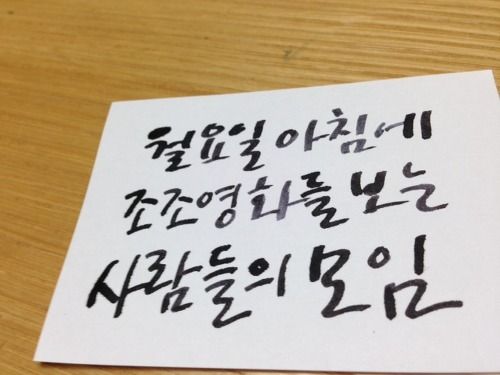 월요일 아침에
조조영화를 보는
사람들의 모임